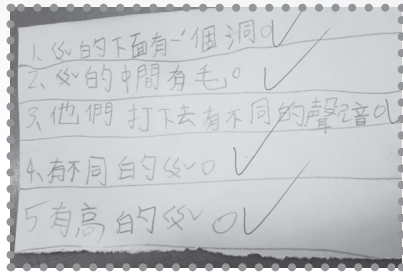 1、ㄍㄍ的下面有一個洞。
2、ㄍㄍ的中間有毛。
3、他們打下去有不同的聲音。
4、有不同的ㄍㄍ。
5、有高的ㄍㄍ。